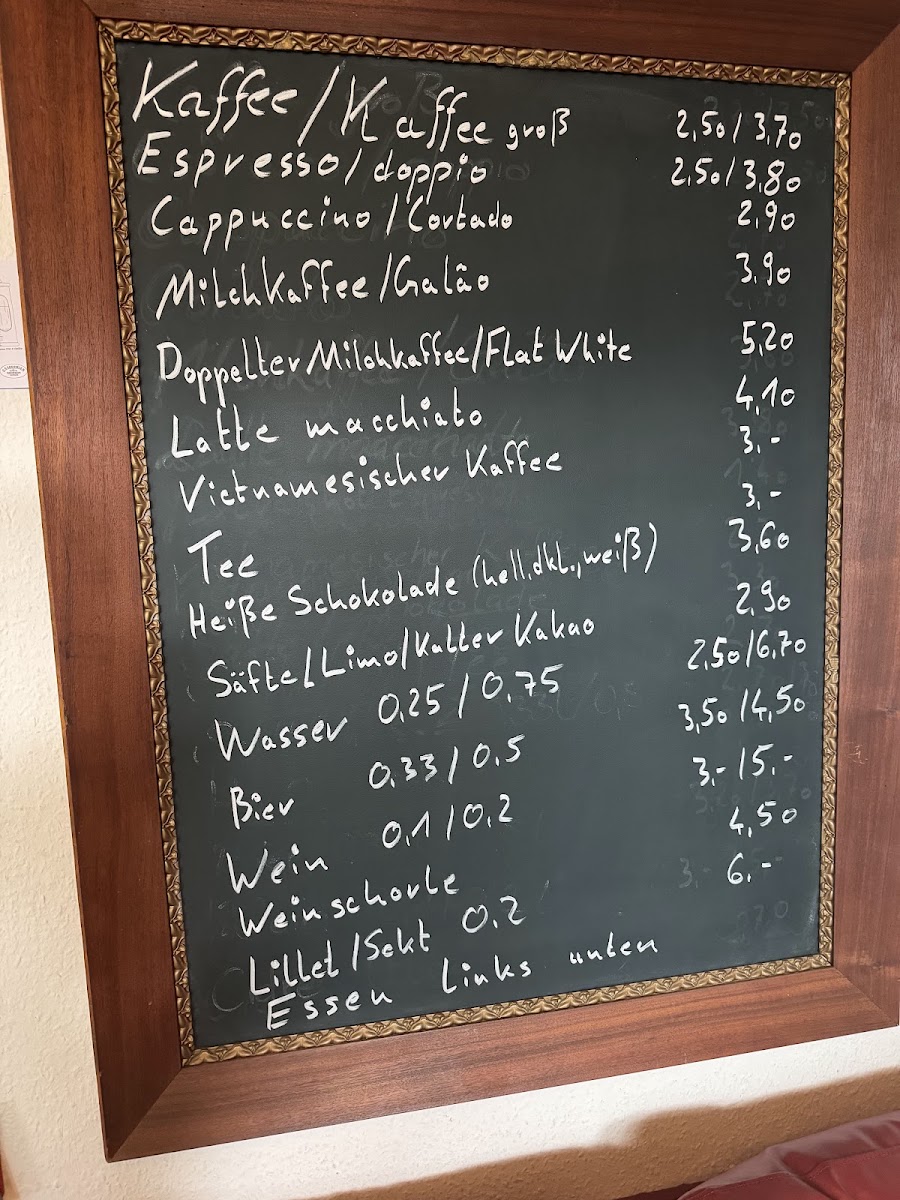 Kaffee/Kaffee groß 2,50/3,70
Espresso/doppio 2,50/3,80
Cappuccino/Cortado 2,90
Milchkaffee/Galão 3,90
Doppelter Milchkaffee/Flat White 5,20
Latte macchiato 4,10
Vietnamesischer Kaffee 3,-
Tee 3,-
Heiße Schokolade (hell,dkl.,weiß) 3,60
Säfte/Limo/Kalter Kakao 2,90
Wasser 0,25/0,75 2,50/6,70
Bier 0,33/0,5 3,50/4,50
Wein 0,1/0,2 3,-/5,-
Weinschorle 4,50
Lillet/Sekt 0,2 6,-
Essen links unten